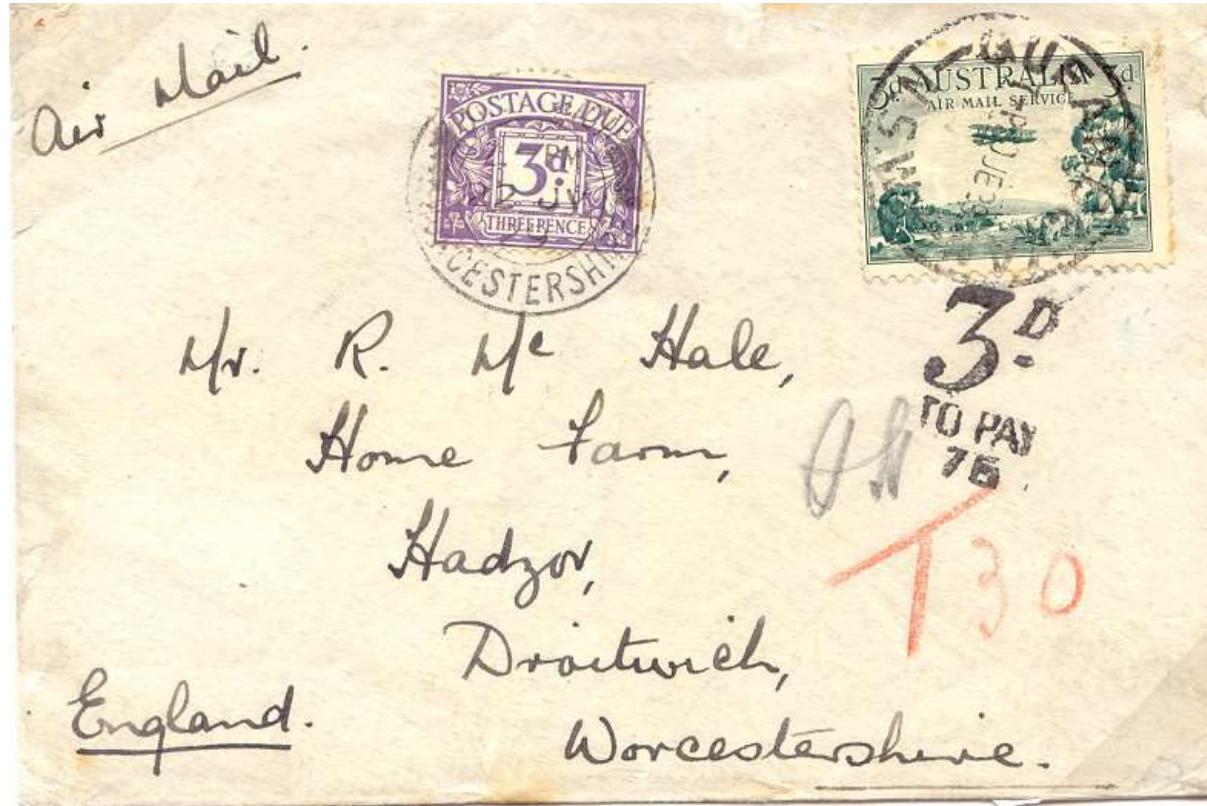 Air Mail.
POSTAGE DUE
3d.
THREE PENCE
PM
22 JY
CESTERSHI
3d. AUSTRALIA 3d.
AIR MAIL SERVICE
3D
TO PAY
76
T 30
Mr. R. Mc Hale,
Home Farm,
Hadzor,
Droitwich,
Worcestershire.
England.